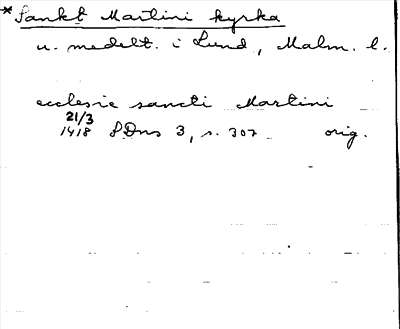 *Sankt Martini kyrka
u. medelt. i Lund, Malm. l.
ecclesie sancti Martini
21/3
1418 SDns 3, s. 307 orig.